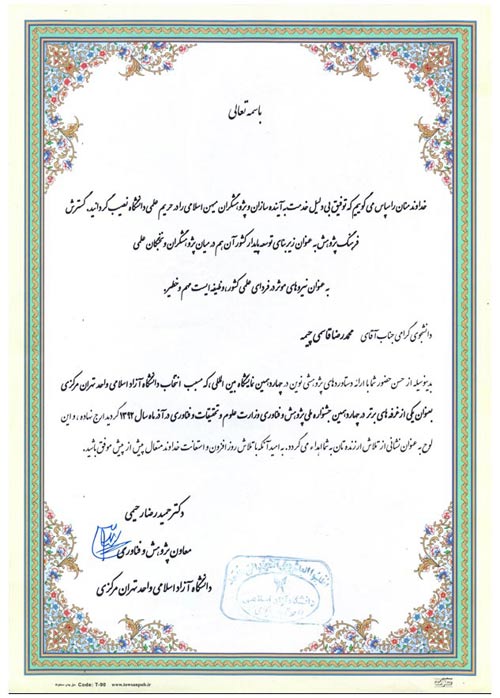 باسمه تعالی
خداوند منان را سپاس می گوییم که توفیق بی دلیل خدمت به آینده سازان و پژوهشگران میهن اسلامی را در حریم علمی دانشگاه نصیب گردانید. گسترش
فرهنگ پژوهش به عنوان زیربنای توسعه پایدار کشور آن هم در میان پژوهشگران و نخبگان علمی
به عنوان نیروهای موثر در فردای علمی کشور، وظیفه ایست مهم و خطیر.
دانشجوی گرامی جناب آقای محمدرضا قاسمی چیمه
بدینوسیله از حسن حضور شما با ارائه دستاوردهای پژوهشی نوین در چهاردهمین نمایشگاه بین المللی، که سبب انتخاب دانشگاه آزاد اسلامی واحد تهران مرکزی
بعنوان یکی از غرفه های برتر در چهاردهمین جشنواره ملی پژوهش و فناوری وزارت علوم و تحقیقات و فناوری در آذر ماه سال ۱۳۹۲ گردید ارج نهاده، و این
لوح به عنوان نشانی از تلاش ارزنده تان به شما اهداء می گردد. به امید آنکه با تلاش روز افزون و استعانت خداوند متعال بیش از پیش موفق باشید.
دکتر حمیدرضا رحیمی
معاون پژوهش و فناوری
دانشگاه آزاد اسلامی واحد تهران مرکزی
دانشگاه آزاد اسلامی
Code: T-90 www.tawsanpub.ir